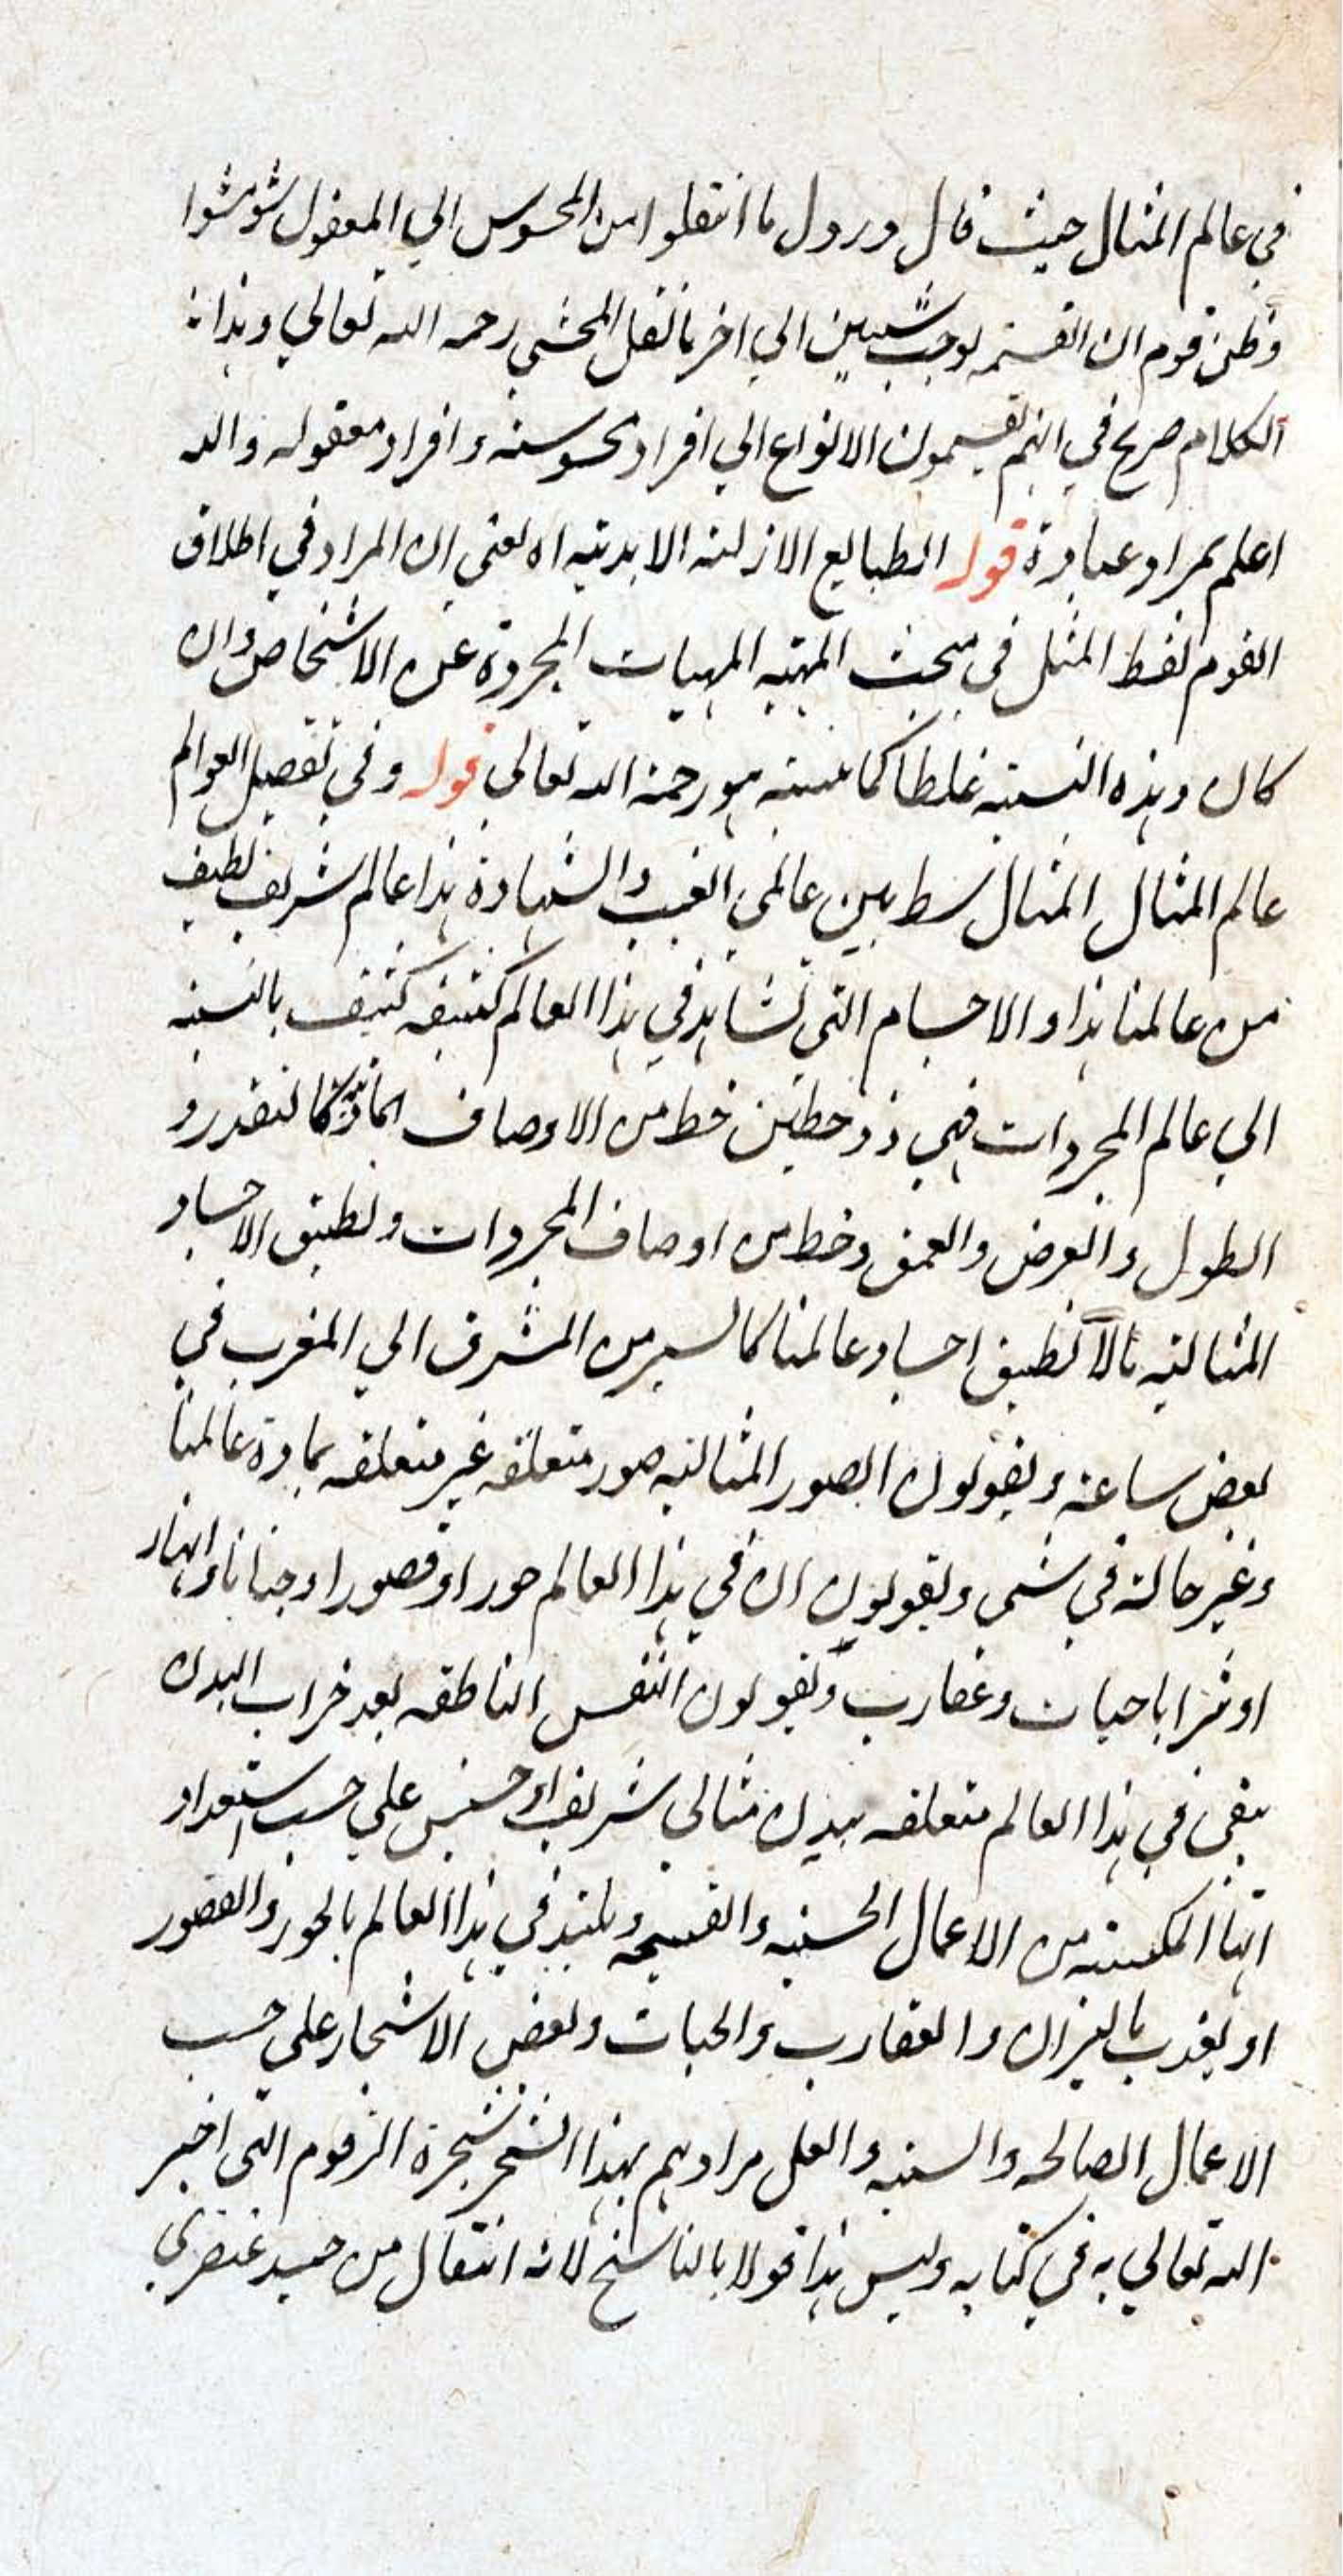 في عالم المثال حيث قال ورول ما انتقلوا من المحسوس الي المعقول شوشوا
وظن قوم ان القسمه توجب شيين الي اخر ما نقل المحشي رحمه الله تعالي وهذا
الكلام صريح في انهم يقسمون الانواع الي افراد محسوسه وافراد معقوله والله
اعلم بمراد عباده قوله الطبايع الازليه الابديه اه يعني ان المراد في اطلاق
القوم لفظ المثل في مبحث المهيه المهيات المجرده عن الاشخاص وان
كان وهذه النسبته غلطا كما بينه هو رحمه الله تعالي قوله وفي تفصيل العوالم
عالم المثال المثال سط بين عالمي الغيب والشهادة هذا عالم شريف لطيف
من عالمنا هذا والاجسام التي نشاهد في هذا العالم كثيفه كثيف بالنسبه
الي عالم المجردات فهي ذو حطين خط من الاوصاف المادية كالتقدر و
الطول والعرض والعمق وخط من اوصاف المجردات ولطيق الاجساد
المثاليه بالا نطيق اجساد عالمنا كالسير من المشرق الي المغرب في
بعض ساعة ويقولون الصور المثاليه صور متعلقه غير متعلقه بمادة عالمنا
وغير حالة في شي ويقولون ان في هذا العالم حورا وقصورا وجنانا وانهار
او نيرانا حيات وعقارب ويقولون النفس الناطقه بعد خراب البدن
يبقي في هذا العالم متعلقه ببدن مثالي شريف او خسيس علي حسب استعداد
اتها المكتسبه من الاعمال الحسنه والقبيحه ويلتذ في هذا العالم بالحور والقصور
او يعذب بالنيران والعقارب والحيات وبعض الاشجار علي حسب
الاعمال الصالحه والسيئه ولعل مرادهم بهذا الشجر شجرة الزقوم التي اخبر
الله تعالي به في كتابه وليس هذا قولا بالتناسخ لانه انتقال من جسد عنصري